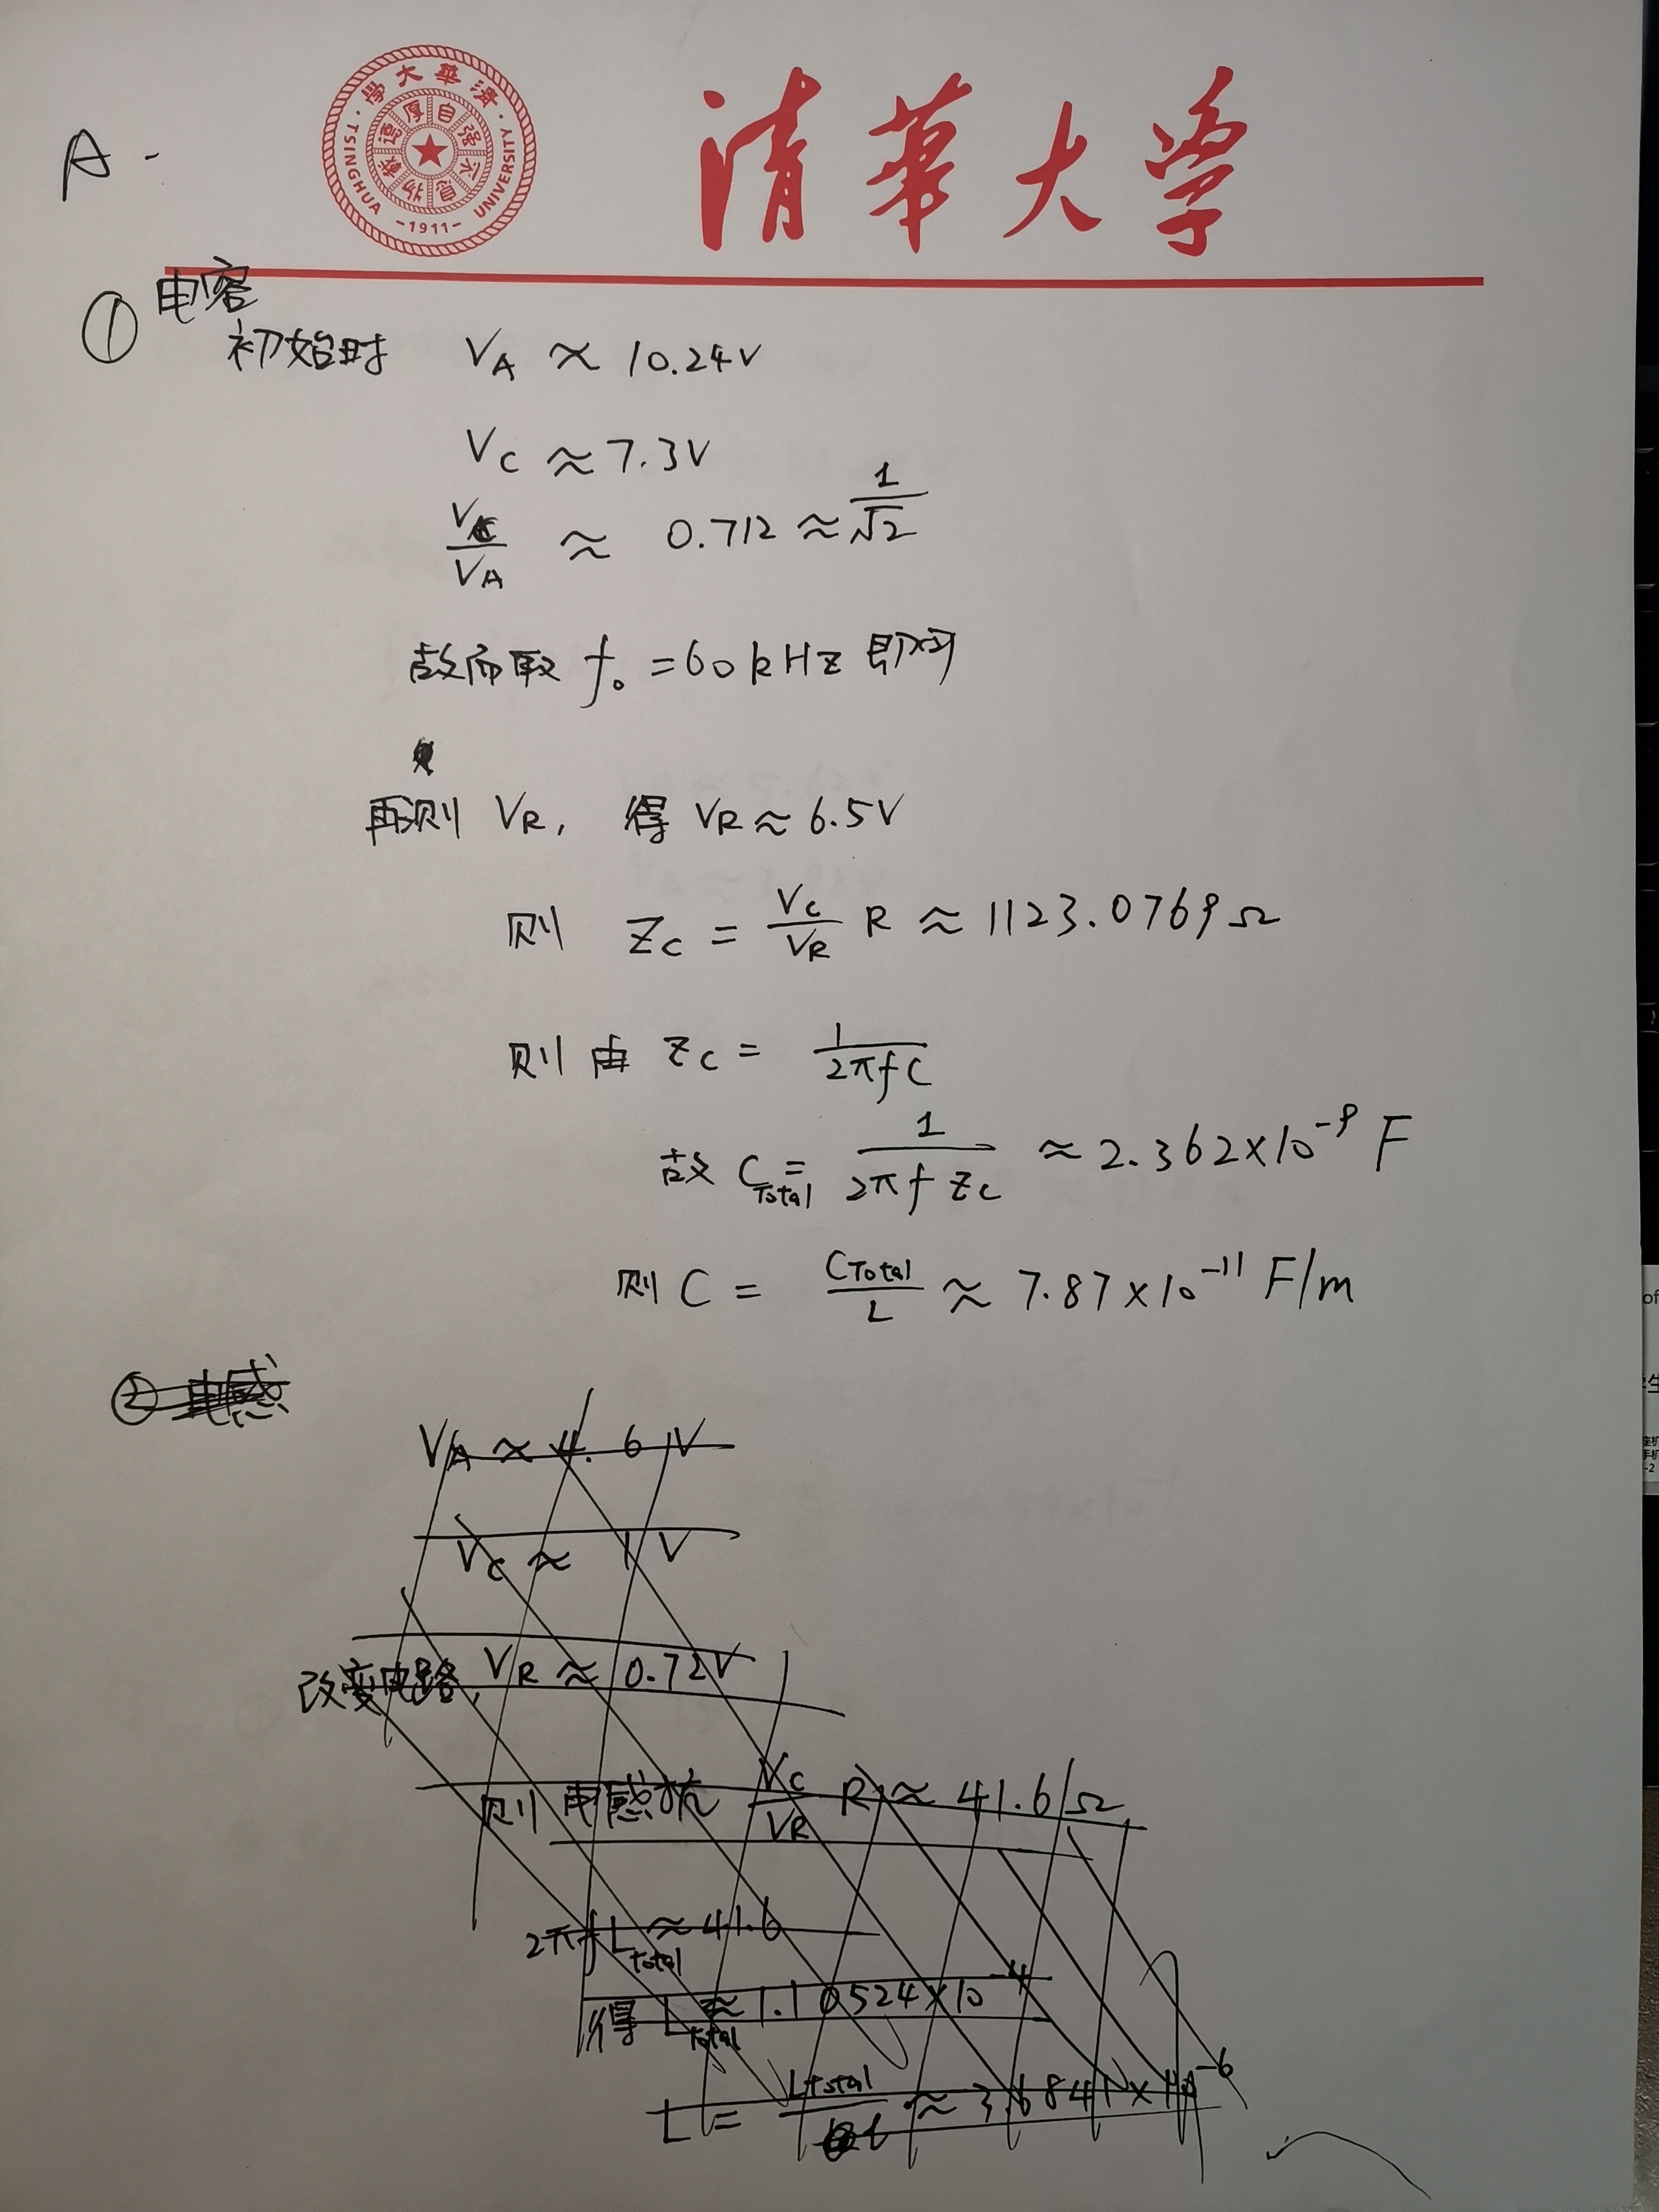 清華大学
清華大學
自强不息
厚德載物
TSINGHUA UNIVERSITY
-1911-
A -
① 电容
初始时 VA ≈ 10.24V
VC ≈ 7.3V
VC/VA ≈ 0.712 ≈ 1/√2
故而取 f₀ = 60kHz 即可
再测 VR, 得 VR ≈ 6.5V
则 ZC = VC/VR R ≈ 1123.0769Ω
则由 ZC = 1/2πfC
故 CTotal = 1/2πfZC ≈ 2.362×10⁻⁹ F
则 C = CTotal/L ≈ 7.87×10⁻¹¹ F/m
② 电感
VA ≈ 4.61V
VC ≈ 1V
改变电路, VR ≈ 0.72V
则 电感抗 VC/VR R ≈ 41.6Ω
2πfLTotal ≈ 41.6
得 LTotal ≈ 1.10524×10⁻⁴
L = LTotal/l ≈ 3.6841×10⁻⁶